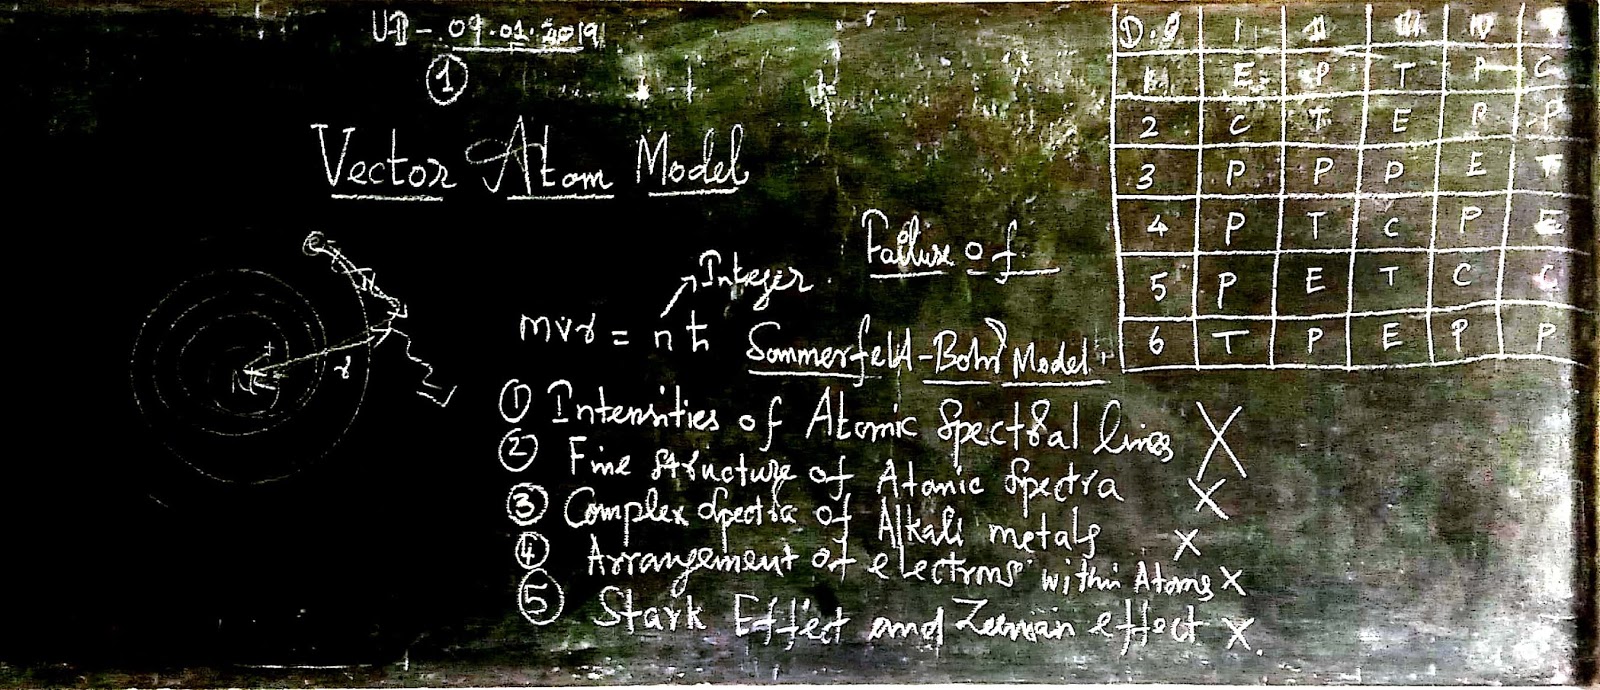 UD - 09.01.2019
①
Vector Atom Model
Failure of
Integer
mvr = nħ
Sommerfeld-Bohr Model
r
N
+
① Intensities of Atomic Spectral lines X
② Fine structure of Atomic Spectra X
③ Complex Spectra of Alkali metals X
④ Arrangement of electrons within Atoms X
⑤ Stark Effect and Zeeman effect X
D.O I II III IV V
1 E P T P C
2 C T E P P
3 P P P E T
4 P T C P E
5 P E T C C
6 T P E P P